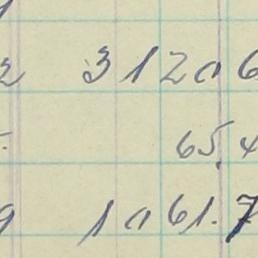 2 31206
65.4
9 1061.7